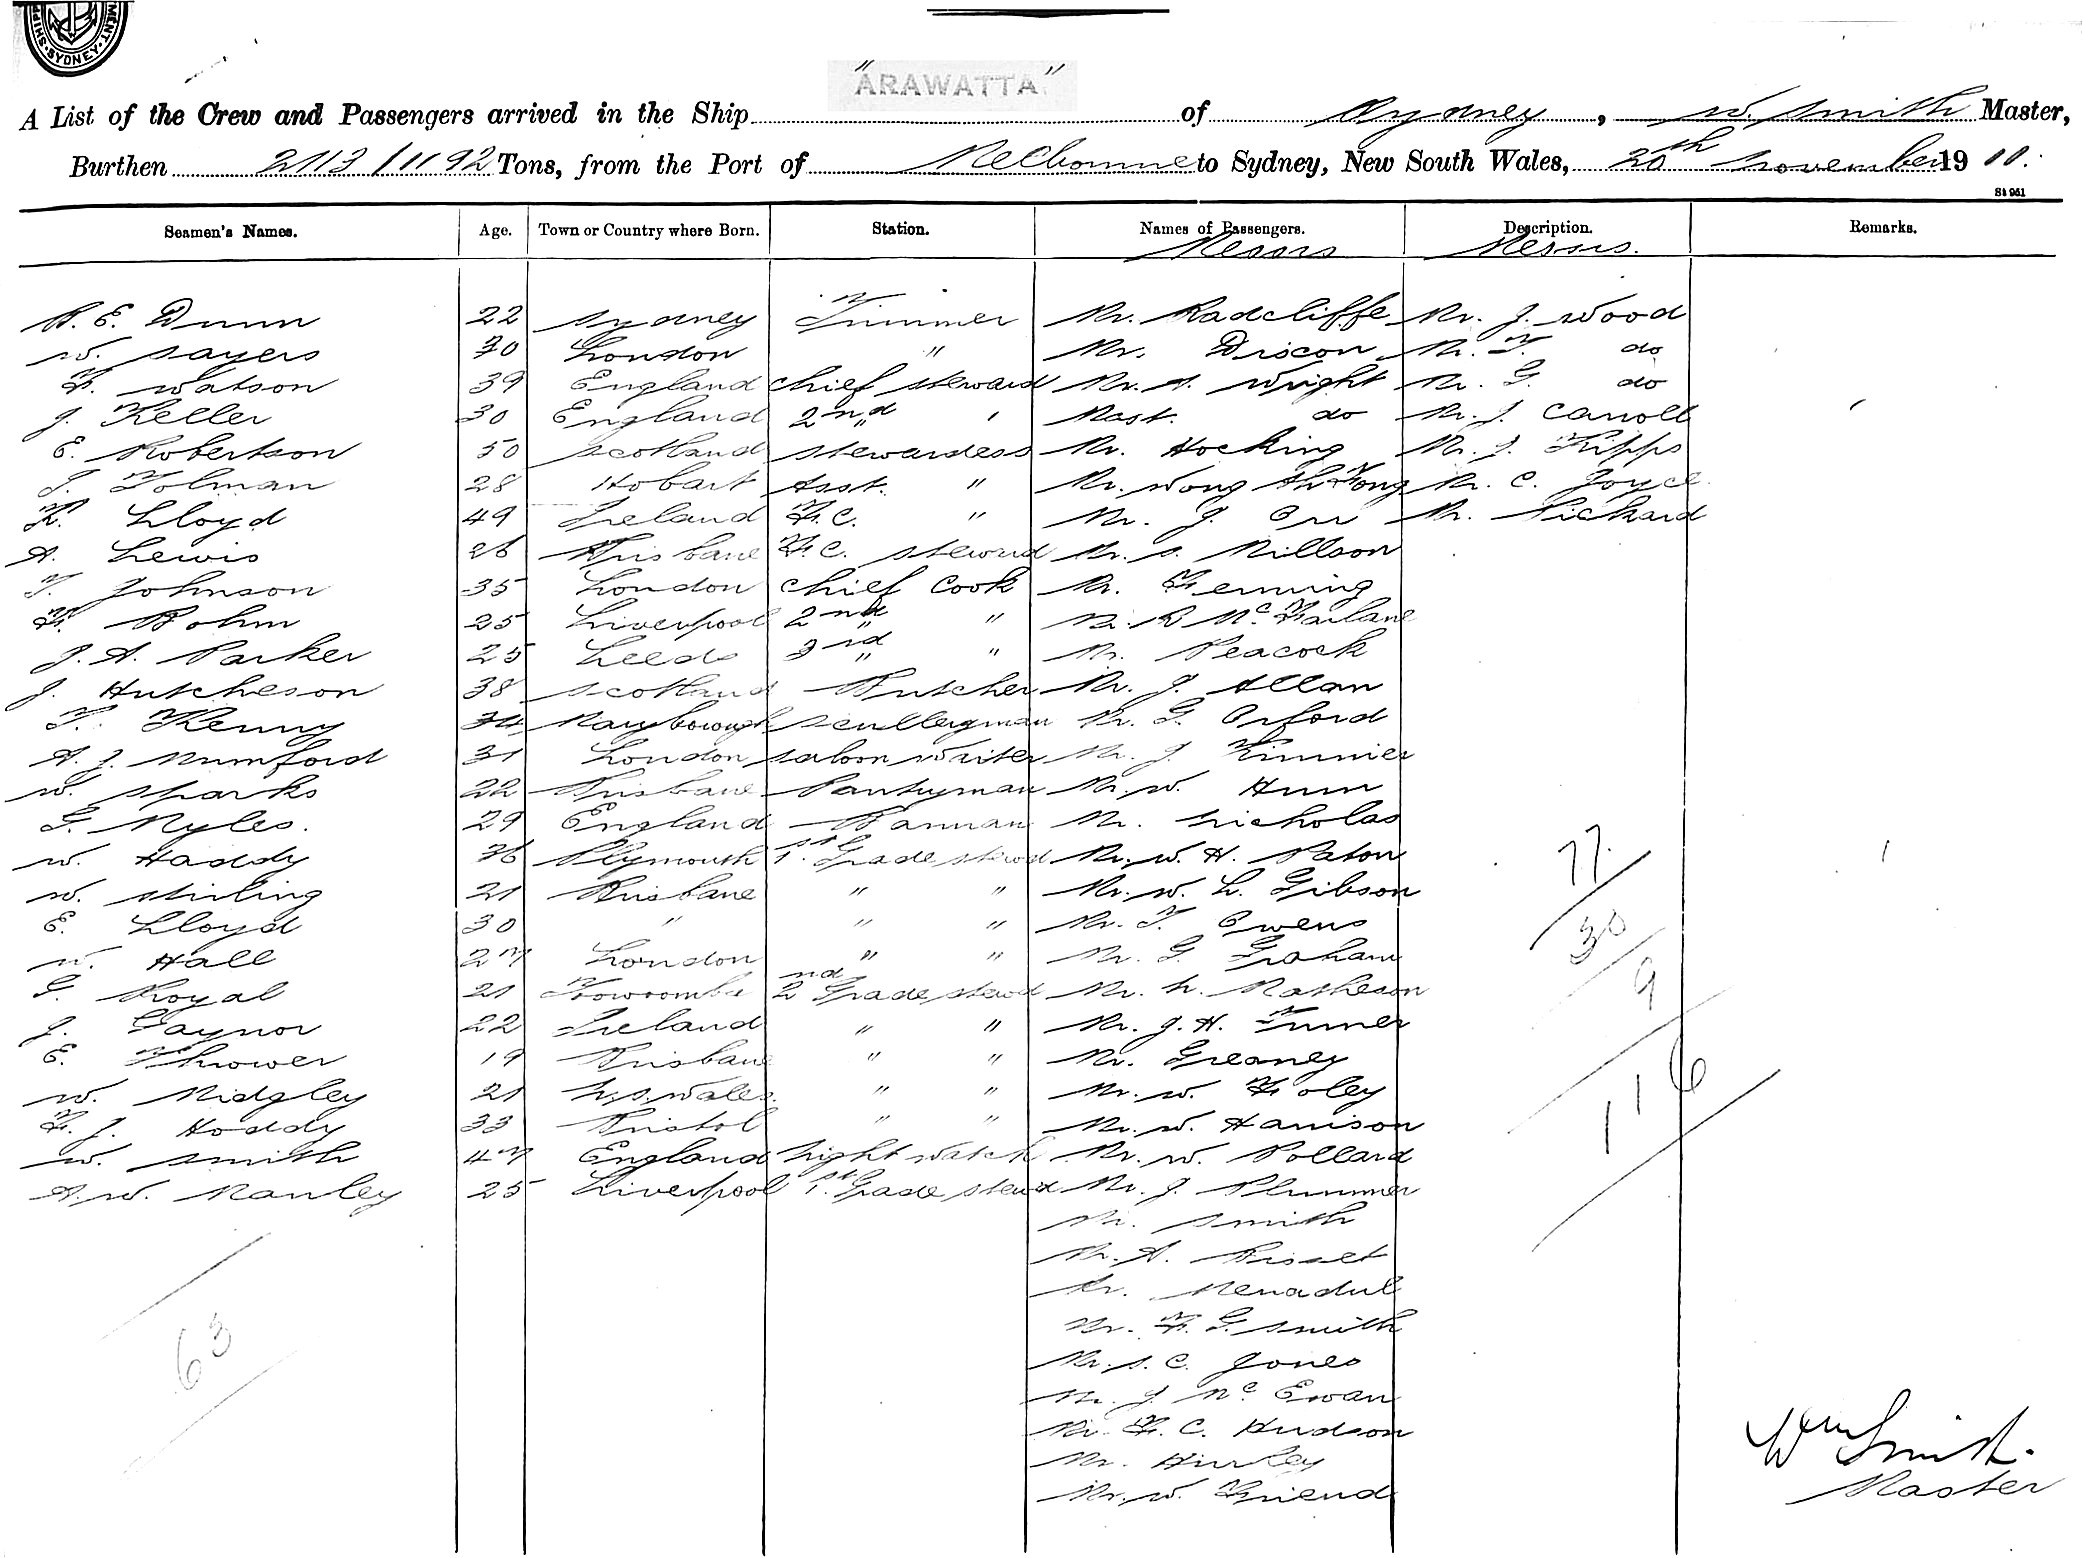 SYDNEY
"ARAWATTA"
A List of the Crew and Passengers arrived in the Ship of Sydney, W. Smith Master,
Burthen 2113/1192 Tons, from the Port of Melbourne to Sydney, New South Wales, 20th November 1911.
St 951
Seamen's Names. Age. Town or Country where Born. Station. Names of Passengers. Description. Remarks.
Messrs Messrs.
B. E. Dunn 22 Sydney Trimmer Mr. Radcliffe Mr. J. Wood
W. Sayers 30 London " Mr. Driscon Mr. T. do
F. Watson 39 England Chief Steward Mr. S. Wright Mr. G. do
J. Keller 30 England 2nd " Mast. do Mr. J. Carroll
E. Robertson 50 Scotland Stewardess Mr. Hocking Mr. J. Kipps
J. Tolman 28 Hobart Asst. " Mr. Wong Ah Fong Mr. C. Joyce
K. Lloyd 49 Ireland F.C. " Mr. J. Orr Mr. Pickard
A. Lewis 26 Brisbane F.C. Steward Mr. S. Millson
T. Johnson 35 London Chief Cook Mr. Fleming
F. Bohm 25 Liverpool 2nd " Mr. R McFarlane
J. A. Parker 25 Leeds 3rd " Mr. Peacock
J. Hutcheson 38 Scotland Butcher Mr. J. Allan
T. Kenny 34 Maryborough Sculleryman Mr. G. Orford
A. J. Mumford 31 London Saloon Waiter Mr. J. Kimmier
W. Sparks 22 Brisbane Pantryman Mr. W. Hunn
G. Myles. 29 England Barman Mr. Nicholas
W. Haddy 36 Plymouth 1st Grade Stewd Mr. W. H. Paton
W. Stirling 21 Brisbane " " Mr. W. L. Gibson
E. Lloyd 30 " " " Mr. T. Owens
W. Hall 27 London " " Mr. G. Graham
G. Royal 21 Toowoomba 2nd Grade Stewd Mr. N. Matheson
J. Gaynor 22 Ireland " " Mr. J. H. Turner
E. Thrower 19 Brisbane " " Mr. Greaney
W. Midgley 21 N.S. Wales " " Mr. W. Foley
F. J. Hoddy 33 Bristol " " Mr. W. Harrison
W. Smith 47 England Night Watch Mr. W. Pollard
A. W. Manley 25 Liverpool 1st Grade Stewd Mr. J. Plummer
Mr. Smith
Mr. A. Bisset
Mr. Menadue
Mr. F. G. Smith
Mr. S. C. Jones
Mr. J McEwan
Mr. F. C. Hudson
Mr. Hurley
Mr. W. Friend
77
30
9
116
63
Wm Smith.
Master